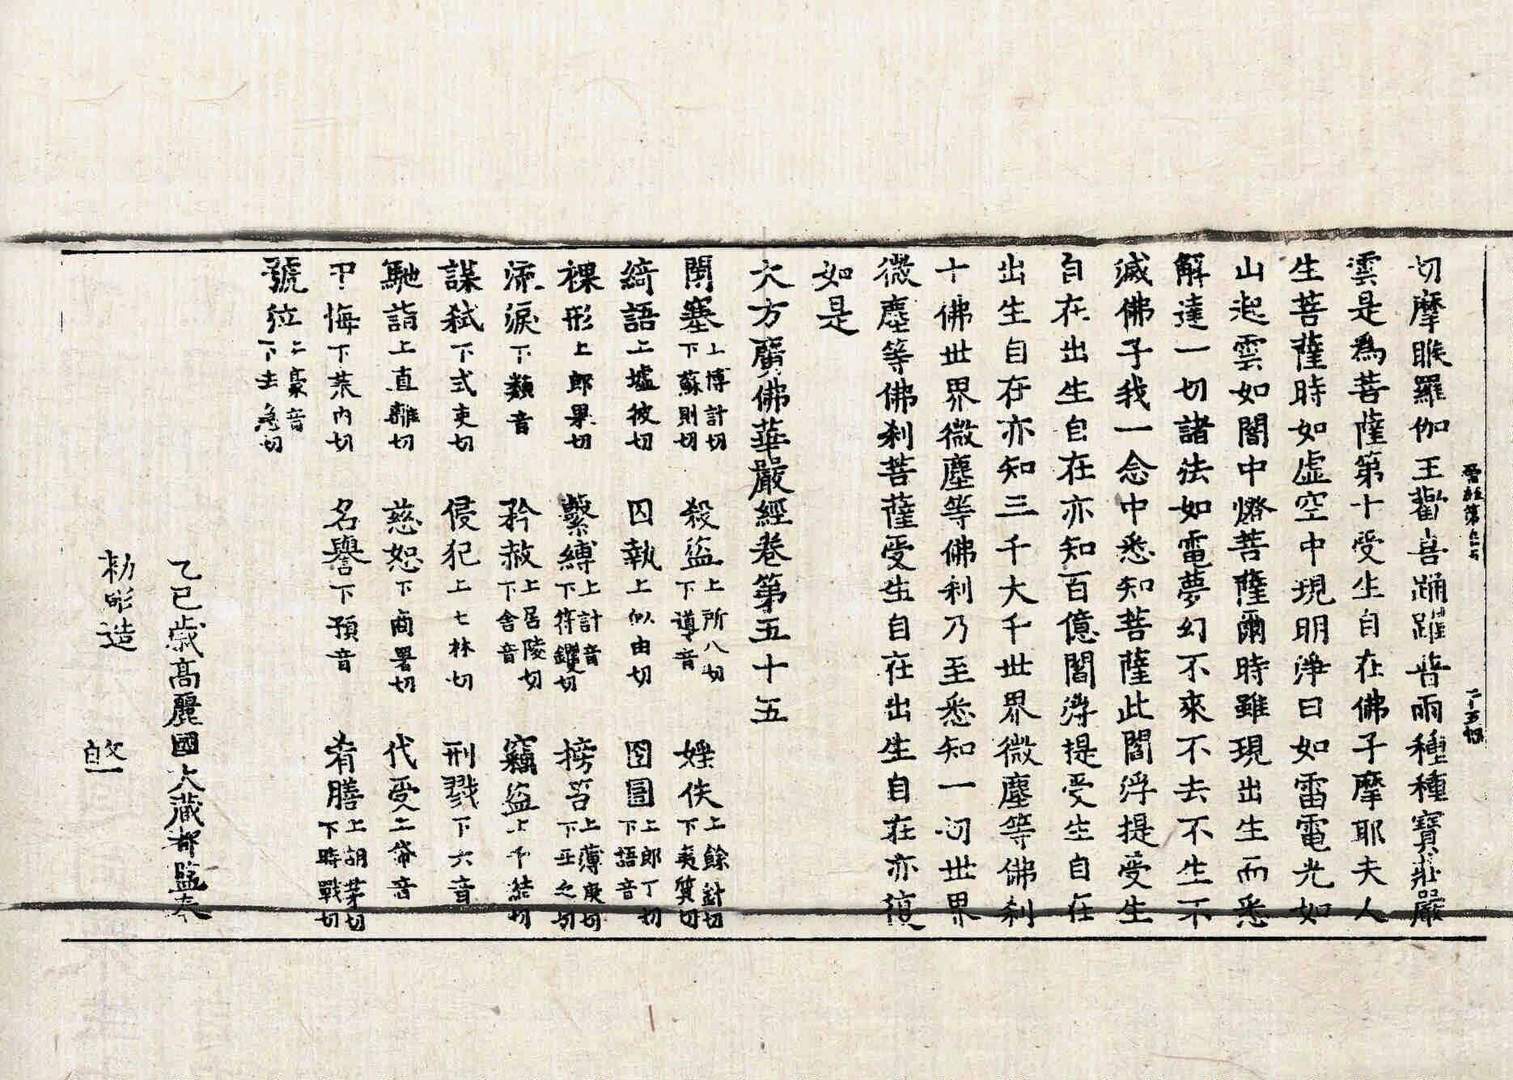 晉經第五十五 二十五張
切摩睺羅伽王歡喜踊躍普雨種種寶莊嚴
雲是為菩薩第十受生自在佛子摩耶夫人
生菩薩時如虛空中現明淨日如雷電光如
山起雲如闇中燈菩薩爾時雖現出生而悉
解達一切諸法如電夢幻不來不去不生不
滅佛子我一念中悉知菩薩此閻浮提受生
自在出生自在亦知百億閻浮提受生自在
出生自在亦知三千大千世界微塵等佛刹
十佛世界微塵等佛利乃至悉知一河世界
微塵等佛刹菩薩受生自在出生自在亦復
如是
大方廣佛華嚴經卷第五十五
閇塞上博計切下蘇則切 殺盜上所八切下導音 婬佚上餘針切下夷質切
綺語上墟彼切 囚執上似由切 囹圄上郎丁切下語音
裸形上郎果切 繫縛上計音下符钁切 搒笞上薄庚切下丑之切
流淚下類音 矜赦上居陵切下舍音 竊盜上千結切
謀弑下式吏切 侵犯上七林切 刑戮下六音
馳詣上直離切 慈恕下商署切 代受上帒音
改悔下荒內切 名譽下預音 肴膳上胡茅切下時戰切
號泣上豪音下去急切
乙巳歲高麗國大藏都監奉
勅彫造